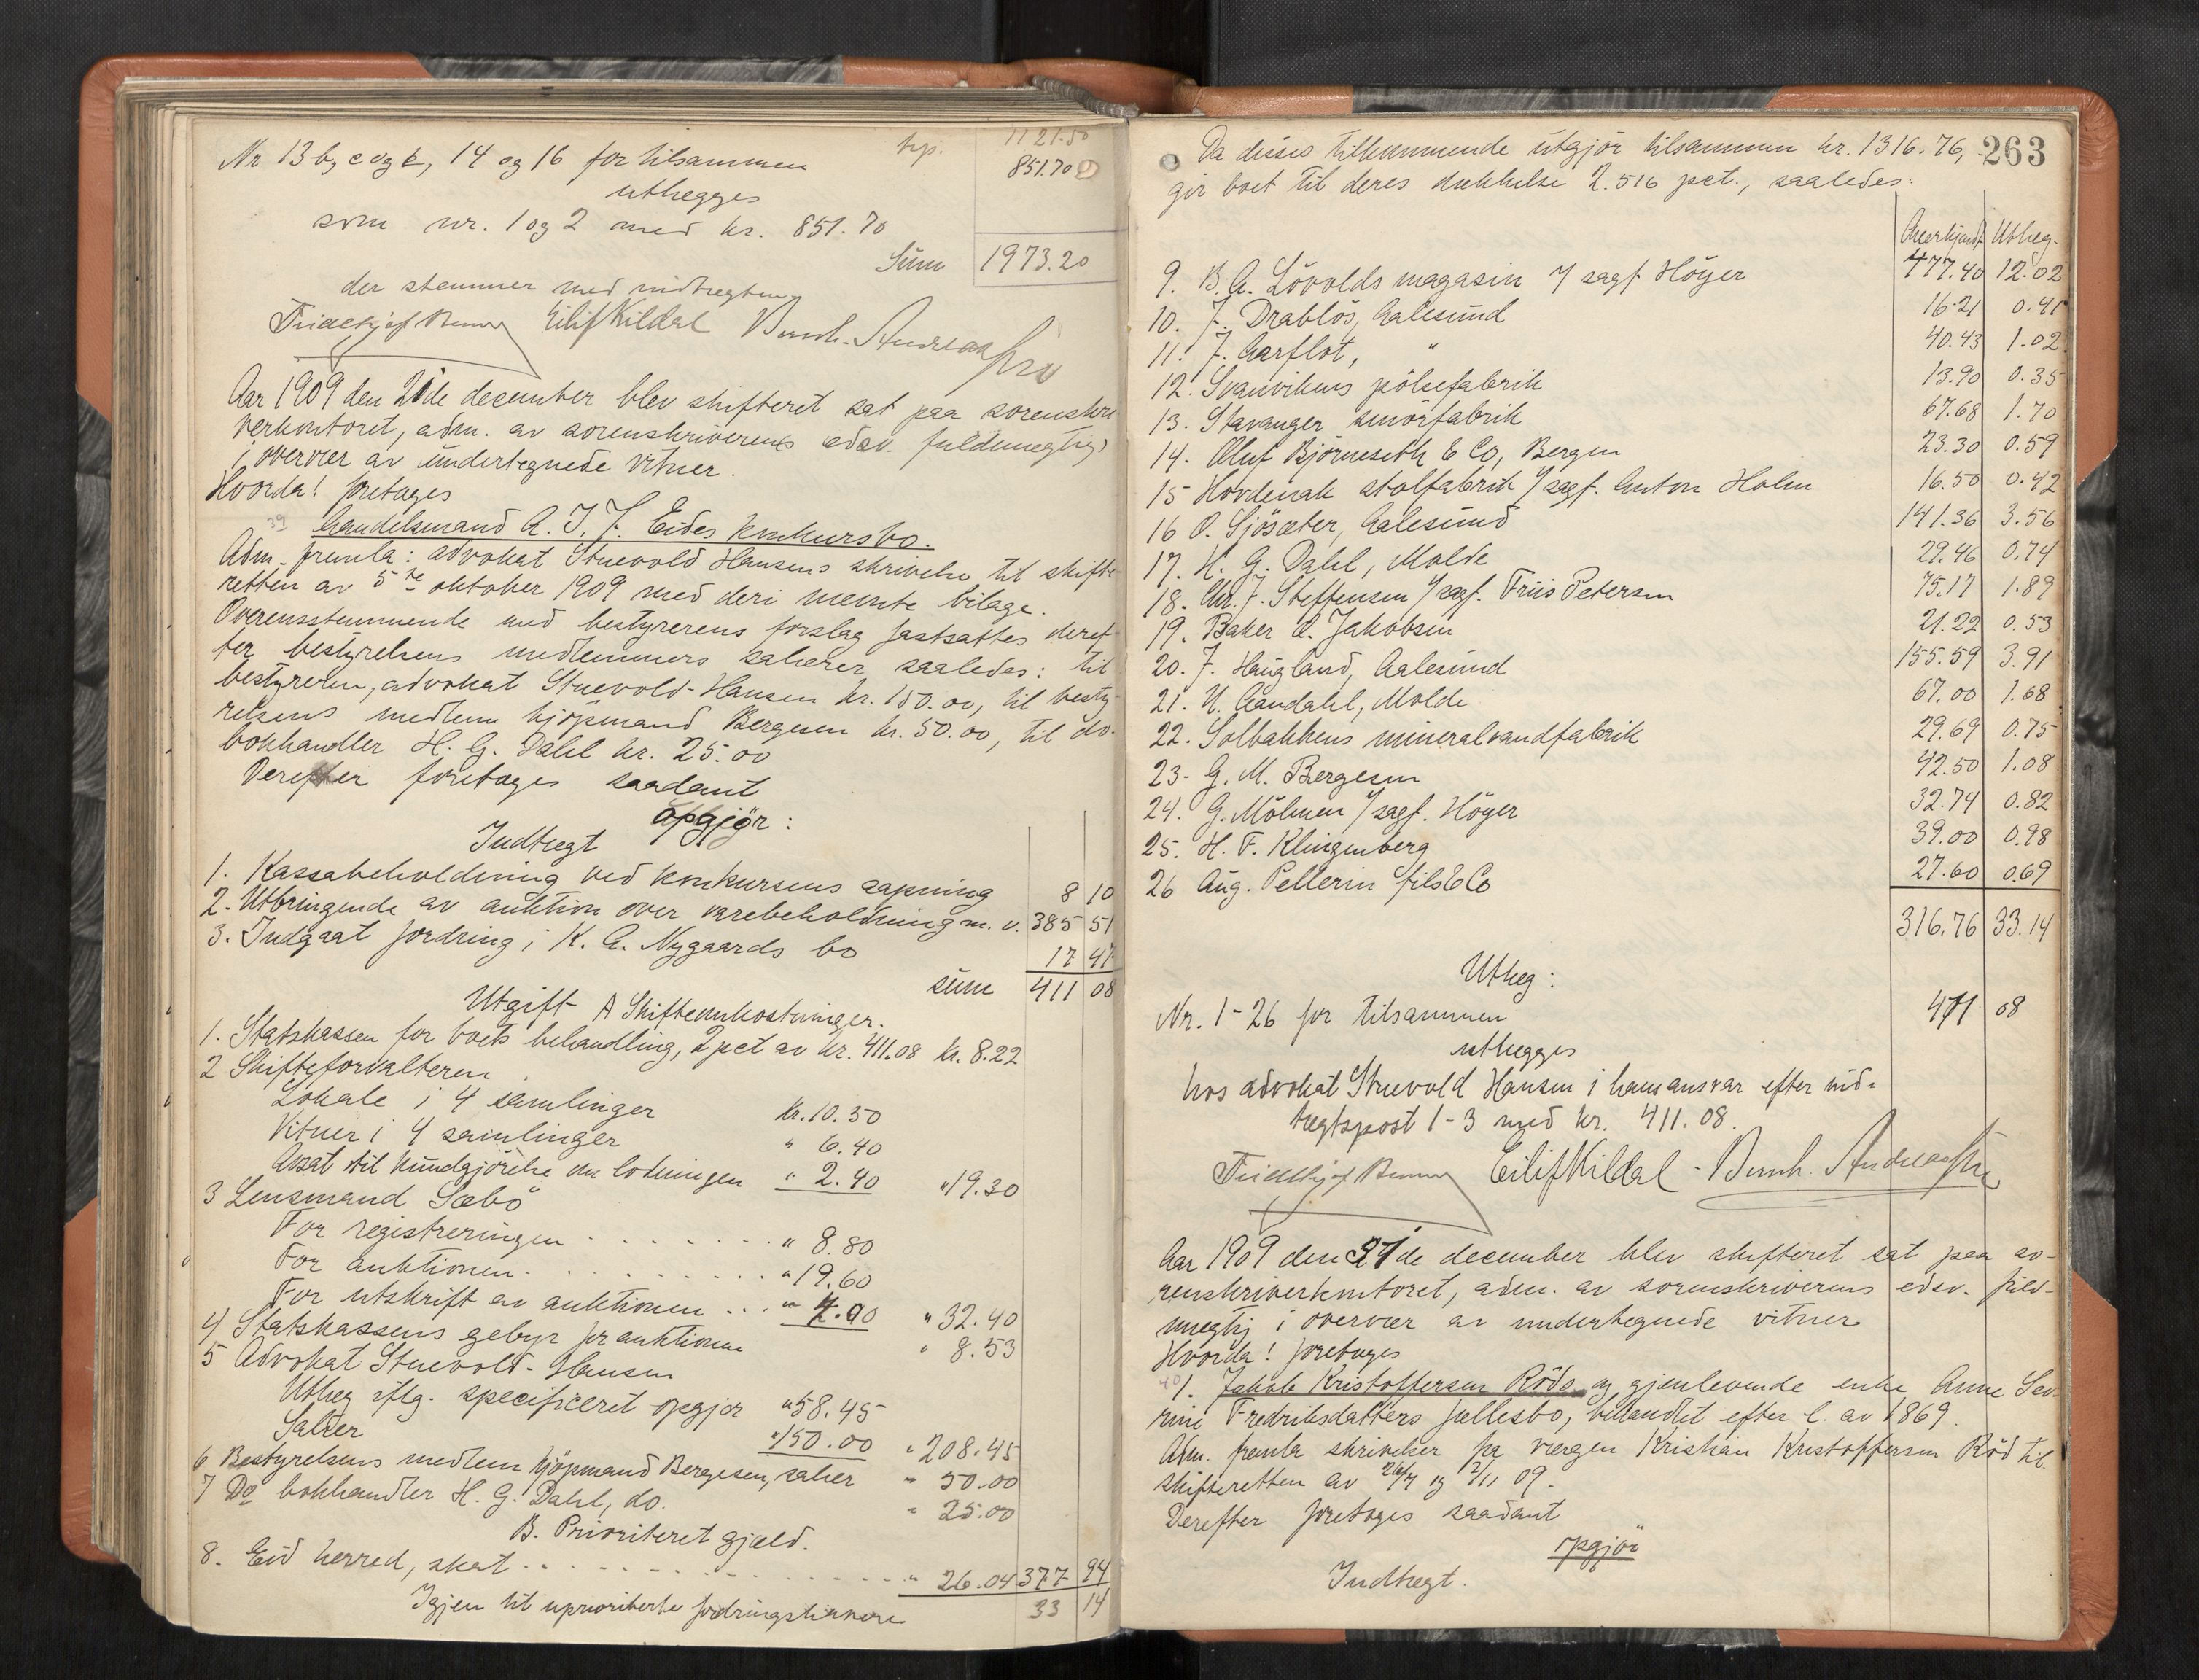 trsp. 1121.50
Nr 13 b, c og e, 14 og 16 for tilsammen 851.70
utlægges
som nr. 1 og 2 med kr. 851.70
Sum 1973.20
der stemmer med indtægten
Eilif Kildal Bernh. Andreassen
Aar 1909 den 21de december blev skifteret sat paa sorenskri-
verkontoret, adm. av sorenskriverens edsv. fuldmegtig
i overvær av undertegnede vitner.
Hvorda! foretages
39 handelsmand A. J. F. Eides konkursbo.
Adm. fremla: advokat Stuevold Hansens skrivelse til skifte-
retten av 5te oktober 1909 med deri nævnte bilage.
Overensstemmende med bestyrerens forslag fastsattes deref-
ter bestyrelsens medlemmers salærer saaledes: til
bestyreren, advokat Stuevold-Hansen kr. 150.00, til besty-
relsens medlem kjøpmand Bergesen kr. 50.00, til do.
bokhandler H. G. Dahl kr. 25.00
Derefter foretages saadant
opgjør:
Indtægt
1. Kassabeholdning ved konkursens aapning 8 10
2. Utbringende av auktion over varebeholdning m. v. 385 51
3. Indgaat fordring i K. A. Nygaards bo 17 47
sum 411 08
Utgift A Skifteomkostninger.
1. Statskassen for boets behandling, 2 pct av kr. 411.08 kr. 8.22
2 Skifteforvalteren
Lokale i 4 samlinger kr. 10.50
Vitner i 4 samlinger " 6.40
Avsat til kundgjørelse om lodningen " 2.40 " 19.30
3 Lensmand Sæbö
For registreringen " 8.80
For auktionen " 19.60
For utskrift av auktionen " 4.00 " 32.40
4 Statskassens gebyr for auktionen " 8.53
5 Advokat Stuevold-Hansen
Utlæg iflg. specificeret opgjør " 58.45
Salær " 150.00 " 208.45
6 Bestyrelsens medlem kjøpmand Bergesen, salær " 50.00
7 Do bokhandler H. G. Dahl, do. " 25.00
B. Prioriteret gjæld.
8. Eid herred, skat " 26.04 377 94
Igjen til uprioriterte fordringshavere 33 14
Da disses tilkommende utgjør tilsammen kr. 1316.76, 263
gir boet til deres dækkelse 2.516 pct., saaledes:
Anerkjendt Utlæg
9. B. A. Lövolds magasin v/ sagf. Höyer 477.40 12.02
10. J. Drablös, Aalesund 16.21 0.41
11. J. Aarflot, " 40.43 1.02
12. Svanvikens pölsefabrik 13.90 0.35
13. Stavanger smörfabrik 67.68 1.70
14. Oluf Björneseth & Co, Bergen 23.30 0.59
15 Hovdenak stolfabrik v/ sagf. Anton Holm 16.50 0.42
16 O. Sjösæter, Aalesund 141.36 3.56
17. H. G. Dahl, Molde 29.46 0.74
18. Chr. J. Steffensen v/ sagf. Friis Petersen 75.17 1.89
19. Baker O. Jakobsen 21.22 0.53
20. J. Haugland, Aalesund 155.59 3.91
21. N. Aandahl, Molde 67.00 1.68
22. Solbakkens mineralvandfabrik 29.69 0.75
23. G. M. Bergesen 42.50 1.08
24. G. Mölmen v/ sagf. Höyer 32.74 0.82
25. H. F. Klingenberg 39.00 0.98
26 Aug. Pellerin fils & Co 27.60 0.69
316.76 33.14
Utlæg:
Nr. 1-26 for tilsammen 411 08
utlægges
hos advokat Stuevold Hansen i hans ansvar efter ind-
tægtspost 1-3 med kr. 411.08.
Eilif Kildal - Bernh. Andreassen
Aar 1909 den 21de december blev skifteret sat paa so-
renskriverkontoret, adm. av sorenskriverens edsv. fuld-
mægtig i overvær av undertegnede vitner
Hvorda! foretages
40 1. Jakob Kristoffersen Röds og gjenlevende enke Anne Sev-
rine Fredriksdatters fællesbo, behandlet efter l. av 1869.
Adm. fremla skrivelser fra værgen Kristian Kristoffersen Röd til
skifteretten av 26/7 og 2/11 09.
Derefter foretages saadant
opgjør
Indtægt.